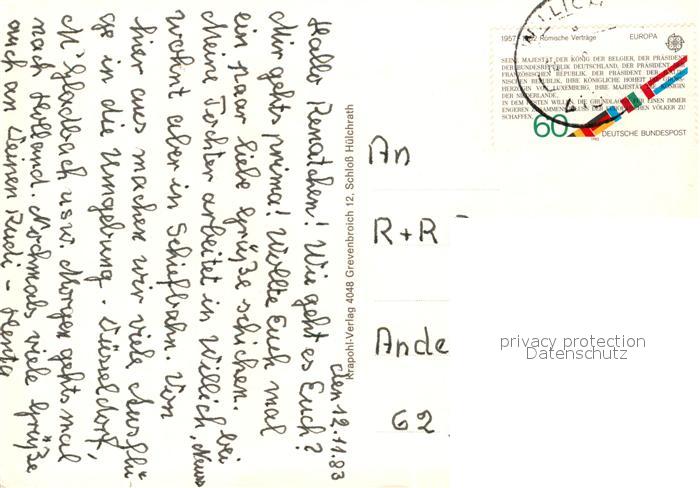 Den 12.11.83
Hallo Renatchen! Wie geht es Euch?
Mir gehts prima! Wollte Euch mal
ein paar liebe Grüße schicken.
Meine Tochter arbeitet in Willich, bei Neuss
wohnt aber in Schiefbahn. Von
hier aus machen wir viele Ausflü-
ge in die Umgebung. Düsseldorf,
M'Gladbach usw. Morgen gehts mal
nach Holland. Nochmals viele Grüße
auch an Deinen Rudi -
Krapohl-Verlag 4048 Grevenbroich 12, Schloß Hülchrath
WILLICH
1957-1982 Römische Verträge EUROPA
SEINE MAJESTÄT DER KÖNIG DER BELGIER, DER PRÄSIDENT
DER BUNDESREPUBLIK DEUTSCHLAND, DER PRÄSIDENT
FRANZÖSISCHEN REPUBLIK, DER PRÄSIDENT DER
NISCHEN REPUBLIK, IHRE KÖNIGLICHE HOHEIT DIE
HERZOG VON LUXEMBURG, IHRE MAJESTÄT KÖNIGIN
DER NIEDERLANDE,
IN DEM FESTEN WILLEN, DIE GRUNDLAGEN FÜR EINEN IMMER
ENGEREN ZUSAMMEN VÖLKER ZU
SCHAFFEN
60 DEUTSCHE BUNDESPOST
1982
An
R+R
Ande
62
privacy protection
Datenschutz